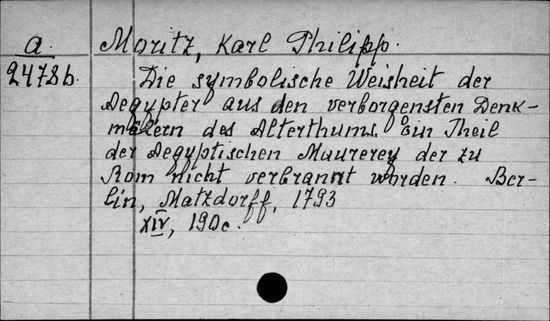 a. Moritz, Karl Philipp.
2478b. Die symbolische Weisheit der
Aegypter aus den verborgensten Denk-
mälern des Alterthums. Ein Theil
der Aegyptischen Maurerey der zu
Rom nicht verbrannt worden. Ber-
lin, Matzdorff, 1793
XIV, 190c.